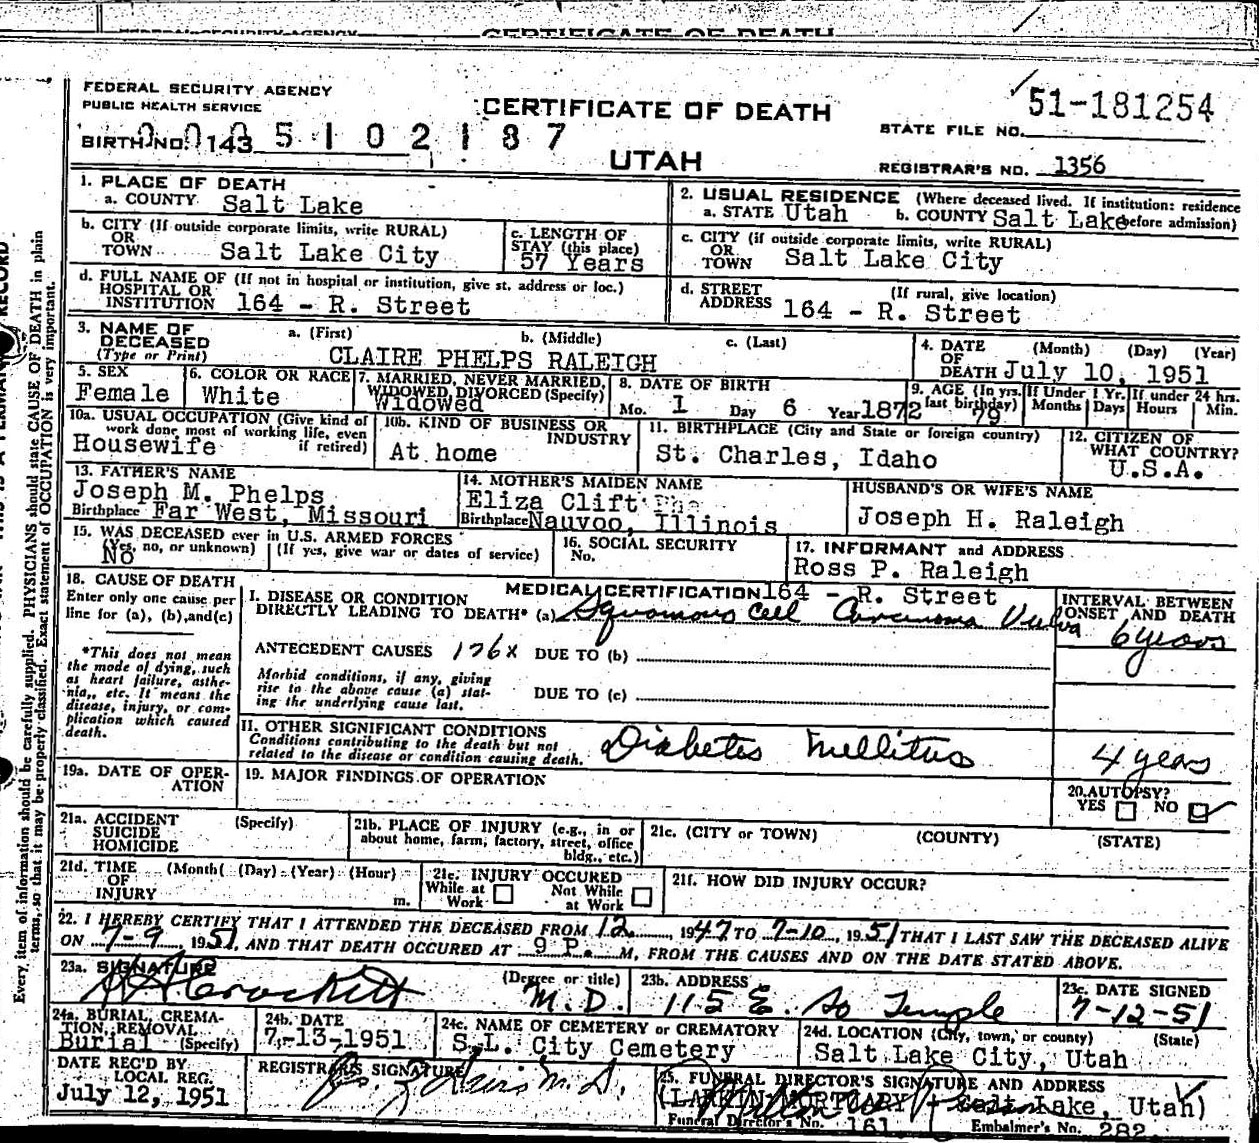 FEDERAL SECURITY AGENCY
PUBLIC HEALTH SERVICE
CERTIFICATE OF DEATH
UTAH
51-181254
STATE FILE NO.
BIRTH NO. 143 5102187
REGISTRAR'S NO. 1356
1. PLACE OF DEATH
a. COUNTY Salt Lake
2. USUAL RESIDENCE (Where deceased lived. If institution: residence before admission)
a. STATE Utah b. COUNTY Salt Lake
b. CITY (If outside corporate limits, write RURAL)
OR
TOWN Salt Lake City
c. LENGTH OF
STAY (this place)
57 Years
c. CITY (if outside corporate limits, write RURAL)
OR
TOWN Salt Lake City
d. FULL NAME OF (If not in hospital or institution, give st. address or loc.)
HOSPITAL OR
INSTITUTION 164 - R. Street
d. STREET (If rural, give location)
ADDRESS 164 - R. Street
3. NAME OF
DECEASED
(Type or Print)
a. (First) b. (Middle) c. (Last)
CLAIRE PHELPS RALEIGH
4. DATE (Month) (Day) (Year)
OF
DEATH July 10, 1951
5. SEX
Female
6. COLOR OR RACE
White
7. MARRIED, NEVER MARRIED,
WIDOWED, DIVORCED (Specify)
Widowed
8. DATE OF BIRTH
Mo. 1 Day 6 Year 1872
9. AGE (In yrs. last birthday) 79
If Under 1 Yr.
Months Days
If under 24 hrs.
Hours Min.
10a. USUAL OCCUPATION (Give kind of
work done most of working life, even
if retired)
Housewife
10b. KIND OF BUSINESS OR
INDUSTRY
At home
11. BIRTHPLACE (City and State or foreign country)
St. Charles, Idaho
12. CITIZEN OF
WHAT COUNTRY?
U.S.A.
13. FATHER'S NAME
Joseph M. Phelps
Birthplace Far West, Missouri
14. MOTHER'S MAIDEN NAME
Eliza Clift
Birthplace Nauvoo, Illinois
HUSBAND'S OR WIFE'S NAME
Joseph H. Raleigh
15. WAS DECEASED ever in U.S. ARMED FORCES
(Yes, no, or unknown) (If yes, give war or dates of service)
No
16. SOCIAL SECURITY
No.
17. INFORMANT and ADDRESS
Ross P. Raleigh
164 - R. Street
18. CAUSE OF DEATH
Enter only one cause per
line for (a), (b), and (c)
*This does not mean
the mode of dying, such
as heart failure, asthe-
nia, etc. It means the
disease, injury, or com-
plication which caused
death.
MEDICAL CERTIFICATION
I. DISEASE OR CONDITION
DIRECTLY LEADING TO DEATH* (a) Squamous Cell Carcinoma Vulva
INTERVAL BETWEEN
ONSET AND DEATH
6 years
ANTECEDENT CAUSES 176x DUE TO (b)
Morbid conditions, if any, giving
rise to the above cause (a) stat-
ing the underlying cause last.
DUE TO (c)
II. OTHER SIGNIFICANT CONDITIONS
Conditions contributing to the death but not
related to the disease or condition causing death.
Diabetes Mellitus
4 years
19a. DATE OF OPER-
ATION
19. MAJOR FINDINGS OF OPERATION
20. AUTOPSY?
YES NO
21a. ACCIDENT (Specify)
SUICIDE
HOMICIDE
21b. PLACE OF INJURY (e.g., in or
about home, farm, factory, street, office
bldg., etc.)
21c. (CITY or TOWN) (COUNTY) (STATE)
21d. TIME (Month) (Day) (Year) (Hour)
OF
INJURY m.
21e. INJURY OCCURED
While at Work Not While at Work
21f. HOW DID INJURY OCCUR?
22. I HEREBY CERTIFY THAT I ATTENDED THE DECEASED FROM 12 1947 TO 7-10, 1951 THAT I LAST SAW THE DECEASED ALIVE
ON 7-9, 1951, AND THAT DEATH OCCURED AT 9 P. M, FROM THE CAUSES AND ON THE DATE STATED ABOVE.
23a. SIGNATURE (Degree or title)
Crockett M.D.
23b. ADDRESS
115 E. So Temple
23c. DATE SIGNED
7-12-51
24a. BURIAL, CREMA-
TION, REMOVAL
Burial (Specify)
24b. DATE
7-13-1951
24c. NAME OF CEMETERY or CREMATORY
S.L. City Cemetery
24d. LOCATION (City, town, or county) (State)
Salt Lake City, Utah
DATE REC'D BY
LOCAL REG.
July 12, 1951
REGISTRAR'S SIGNATURE
M.D.
25. FUNERAL DIRECTOR'S SIGNATURE AND ADDRESS
(LARKIN MORTUARY - Salt Lake, Utah)
Funeral Director's No. 161 Embalmer's No. 282
Every item of information should be carefully supplied. PHYSICIANS should state CAUSE OF DEATH in plain
terms, so that it may be properly classified. Exact statement of OCCUPATION is very important.